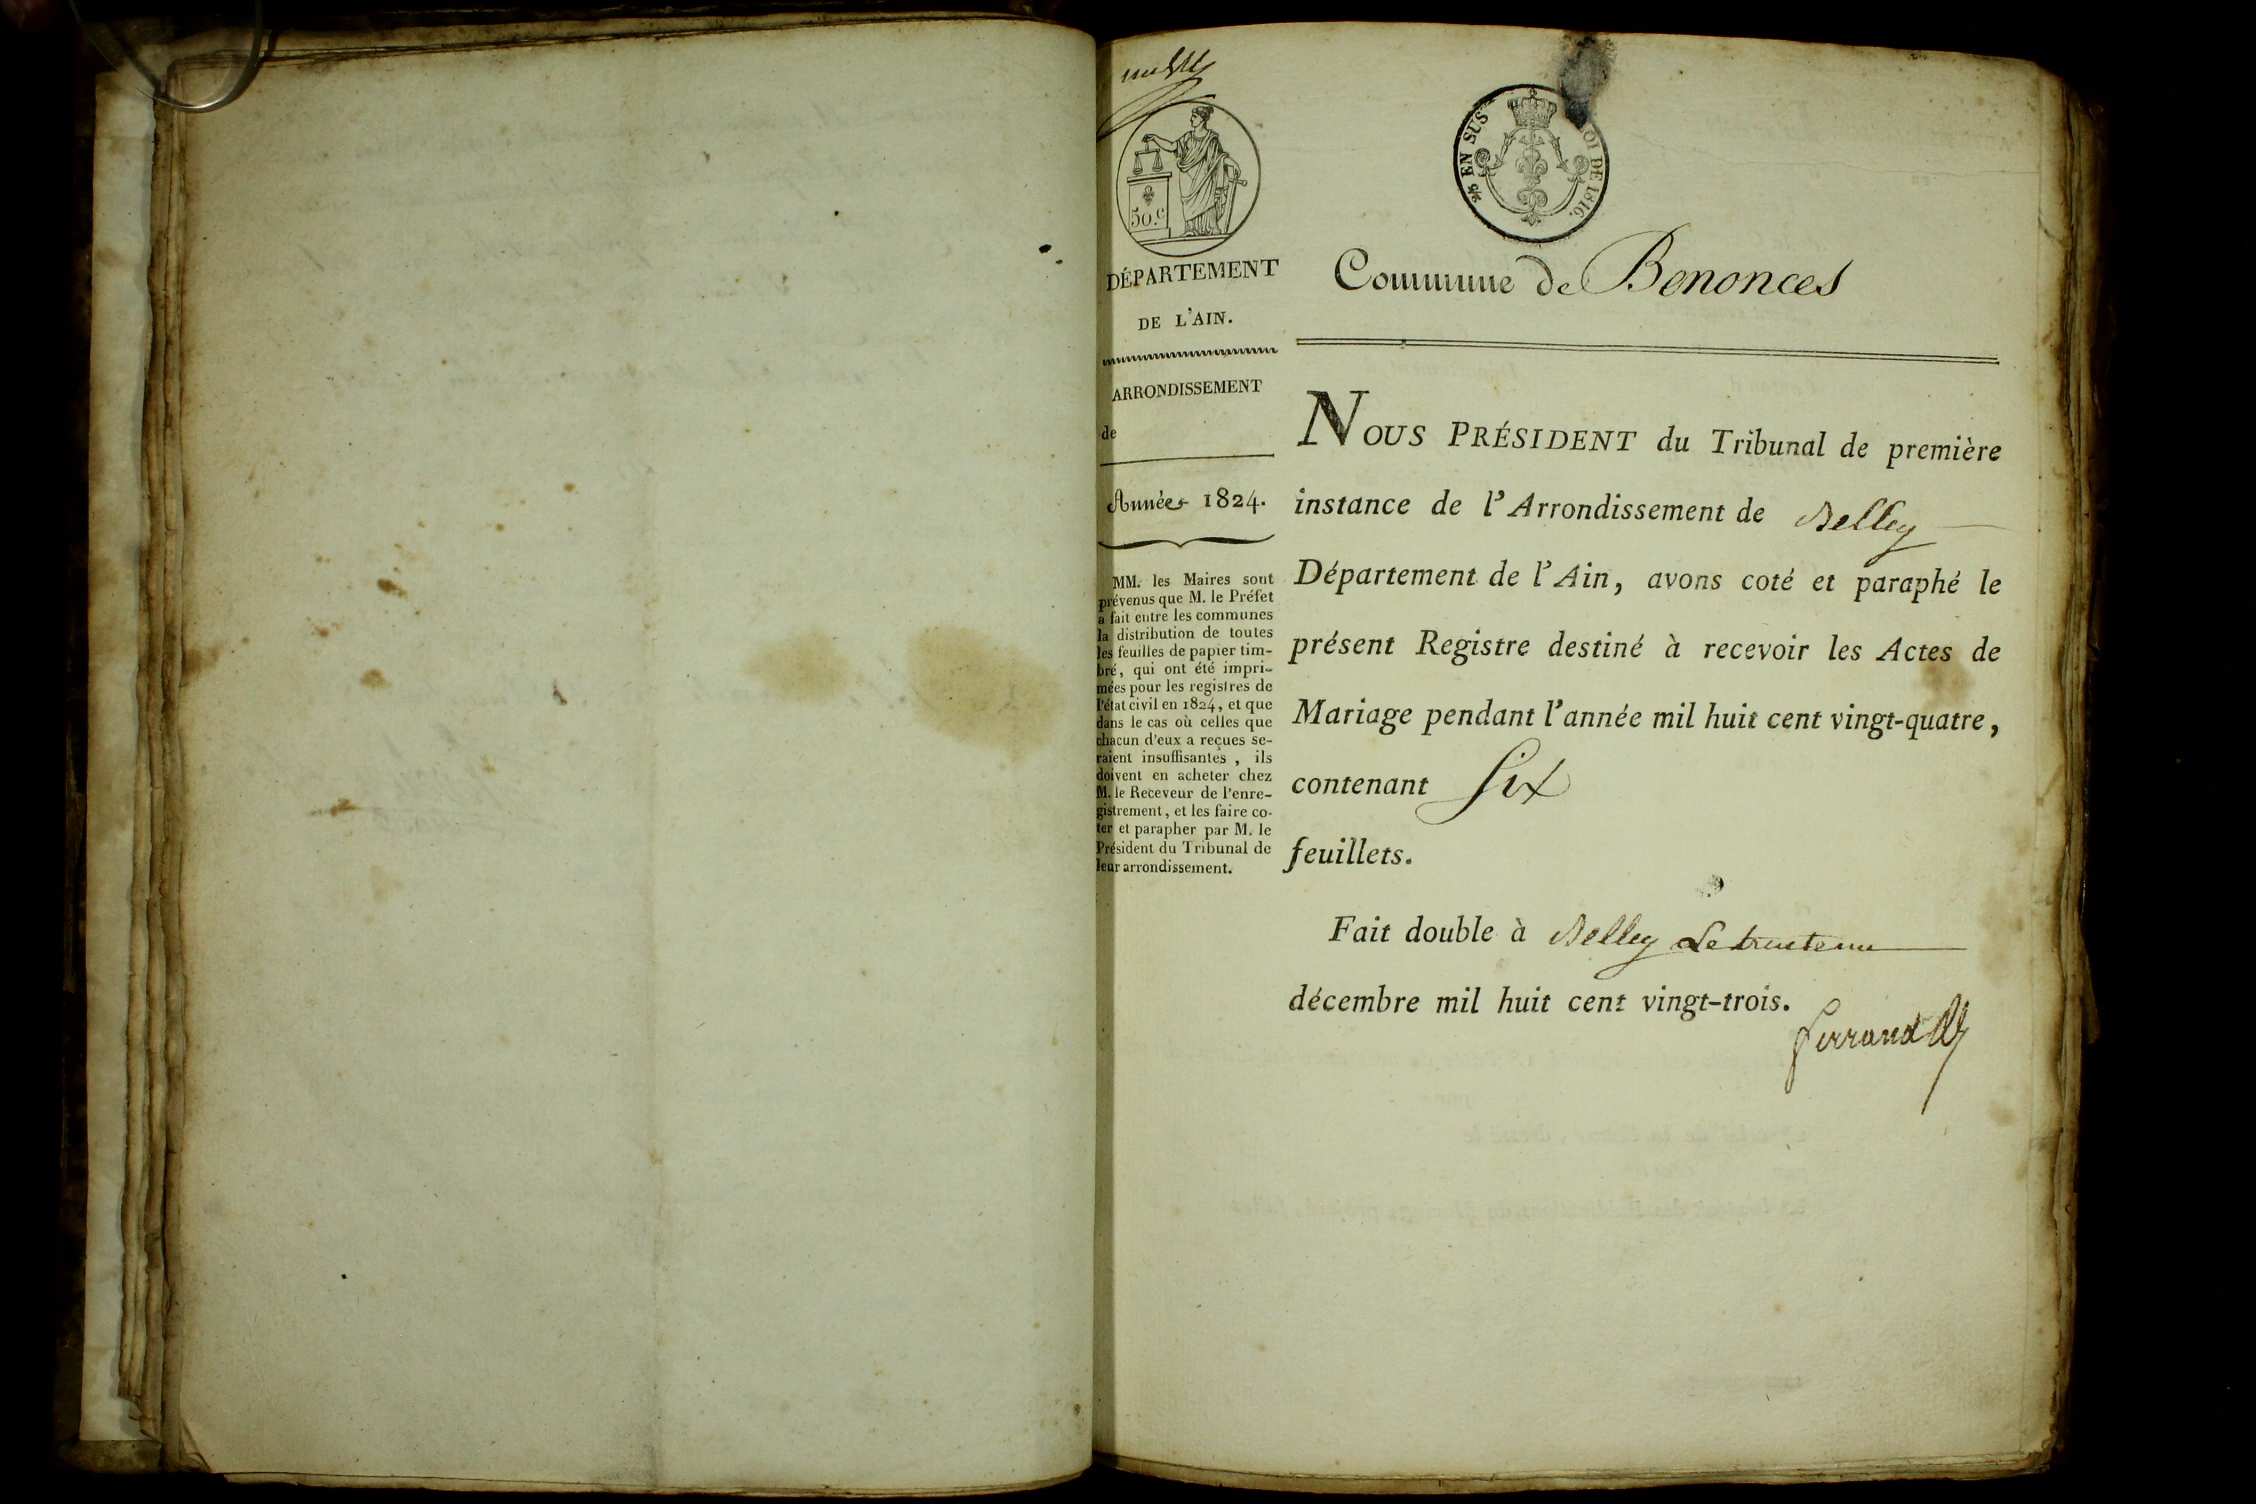 50.c
2/5 EN SUS
OI DE 1816.
DÉPARTEMENT
DE L'AIN.
ARRONDISSEMENT
de
Année 1824.
MM. les Maires sont
prévenus que M. le Préfet
a fait entre les communes
la distribution de toutes
les feuilles de papier tim-
bré, qui ont été impri-
mées pour les registres de
l'état civil en 1824, et que
dans le cas où celles que
chacun d'eux a reçues se-
raient insuffisantes, ils
doivent en acheter chez
M. le Receveur de l'enre-
gistrement, et les faire co-
ter et parapher par M. le
Président du Tribunal de
leur arrondissement.
Commune de Benonces
NOUS PRÉSIDENT du Tribunal de première
instance de l'Arrondissement de Belley
Département de l'Ain, avons coté et paraphé le
présent Registre destiné à recevoir les Actes de
Mariage pendant l'année mil huit cent vingt-quatre,
contenant Six
feuillets.
Fait double à Belley Le trente un
décembre mil huit cent vingt-trois.
ferrand